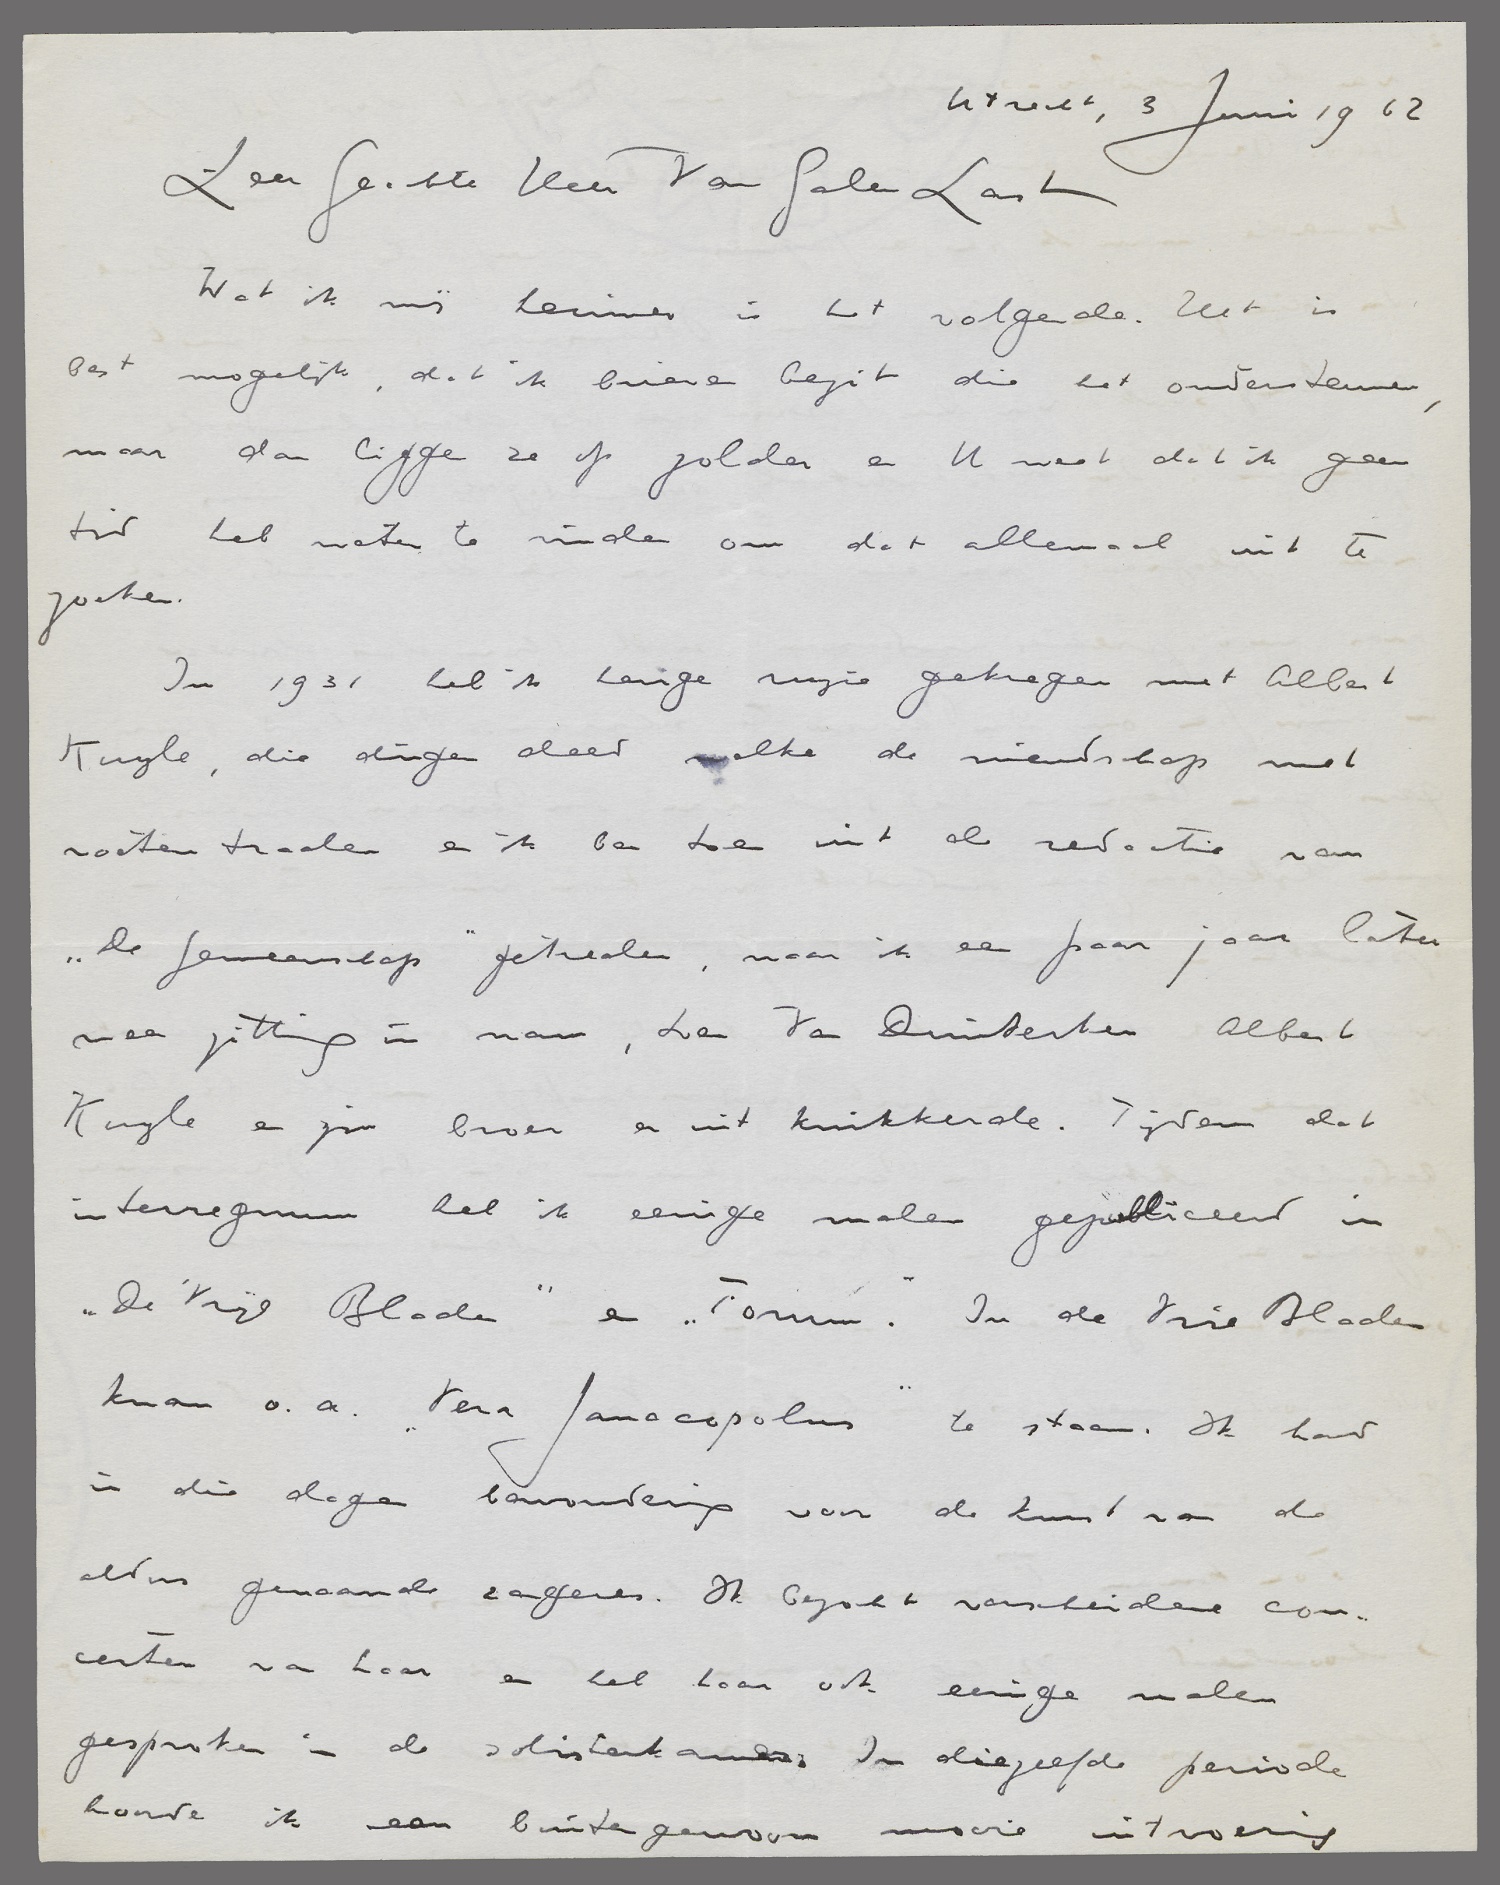 Utrecht, 3 Juni 1962
Zeer Geachte Heer Van Galen Last
Wat ik mij herinner is het volgende. Het is
best mogelijk, dat ik brieven bezit die het ondersteunen,
maar dan liggen ze op zolder en U weet dat ik geen
tijd heb weten te vinden om dat allemaal uit te
zoeken.
In 1931 heb ik hevige ruzie gekregen met Albert
Kuyle, die dingen deed welke de vriendschap met
voeten traden en ik ben toen uit de redactie van
„De Gemeenschap" getreden, waar ik een paar jaar later
weer zitting in nam, toen Van Duinkerken Albert
Kuyle en zijn broer er uit knikkerde. Tijdens dat
interregnum heb ik eenige malen gepubliceerd in
„De Vrije Bladen" en „Forum". In de Vrije Bladen
kwam o.a. „Vera Janacopolus" te staan. Ik had
in die dagen bewondering voor de kunst van de
aldus genaamde zangeres. Ik bezocht verscheidene con-
certen van haar en heb haar ook eenige malen
gesproken in de solistenkamer. In diezelfde periode
hoorde ik een buitengewoon mooie uitvoering